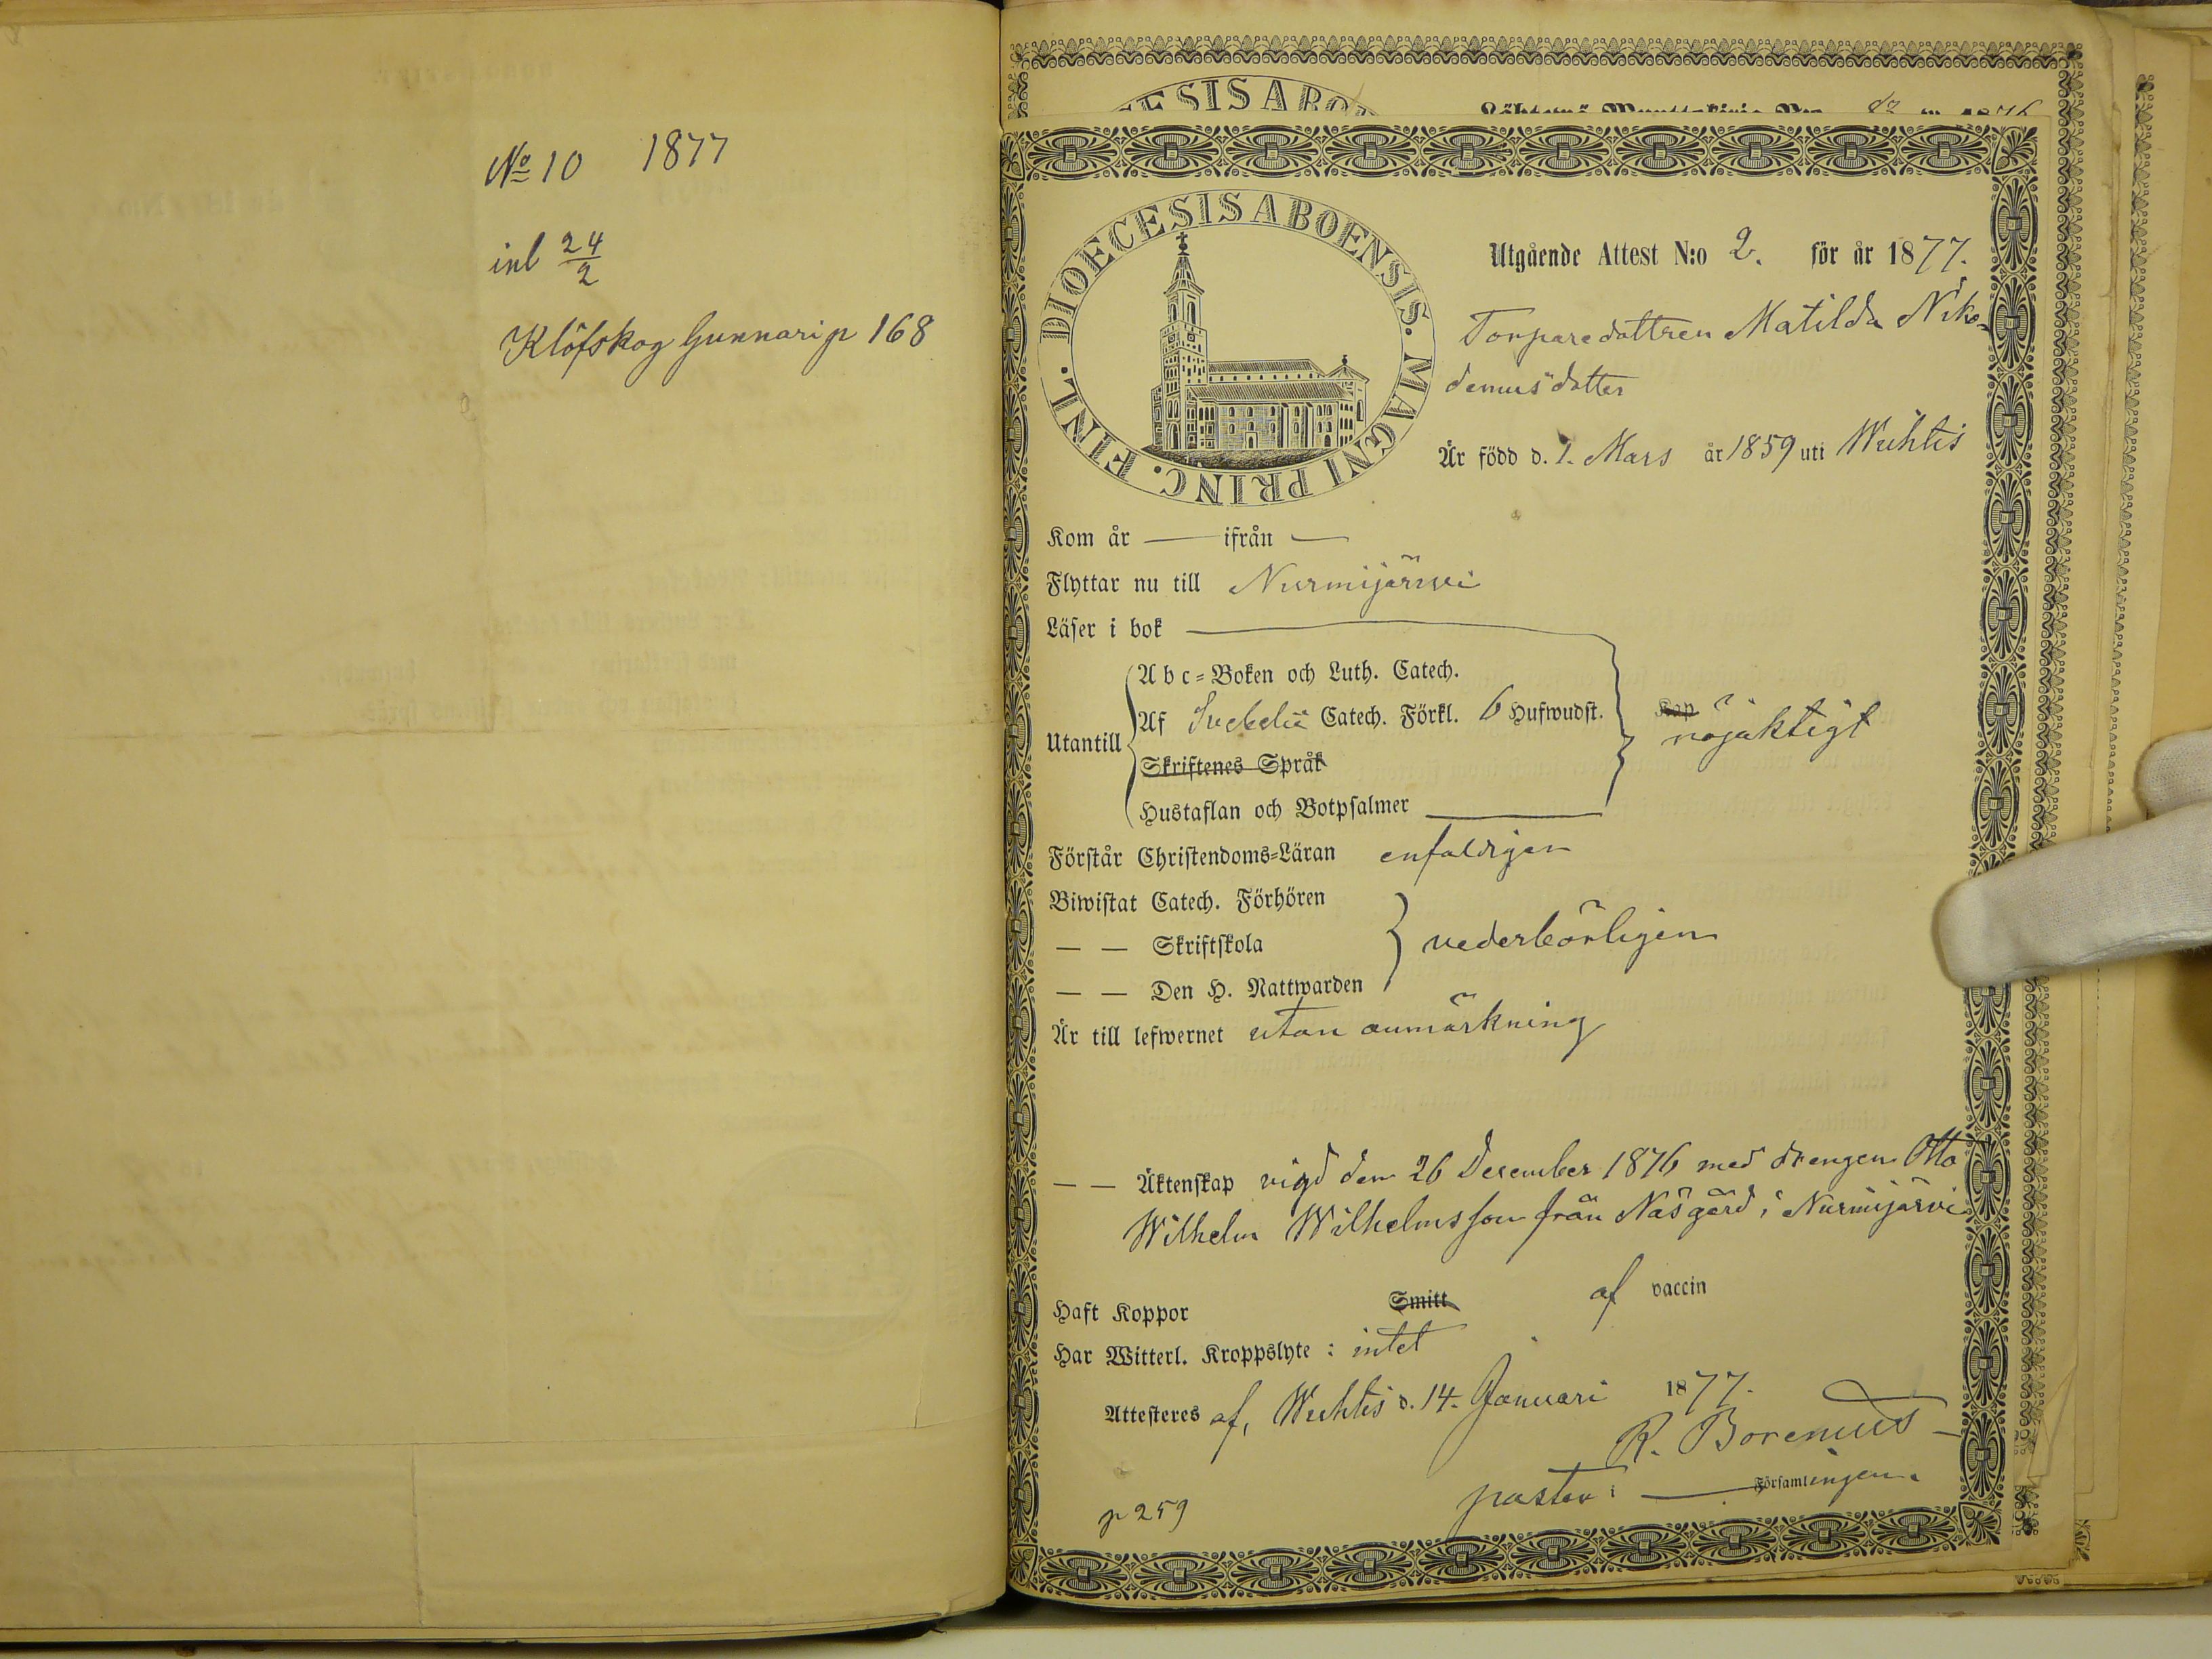 № 10 1877
inl 24/2
Klöfskog Gunnari p 168
DIOECESIS ABOENSIS. MAGNI PRINC. FINL.
Utgående Attest N:o 2. för år 1877.
Torparedottren Matilda Niko-
demusdotter
Är född d. 1. Mars år 1859 uti Wichtis
Kom år — ifrån —
Flyttar nu till Nurmijärwi
Läser i bok
Abc-Boken och Luth. Catech.
Utantill Af Svebelii Catech. Förkl. 6 Hufwudst. Kap nöjaktigt
Skriftenes Språk
Hustaflan och Botpsalmer
Förstår Christendoms-Läran enfaldigen
Biwistat Catech. Förhören
— — Skriftskola vederbörligen
— — Den H. Nattwarden
Är till lefwernet utan anmärkning
— — Äktenskap vigd den 26 December 1876 med drengen Otto
Wilhelm Wilhelmsson från Näsgård i Nurmijärvi
Haft Koppor Smitt af vaccin
Har Witterl. Kroppslyte : intet
Attesteres af, Wichtis d. 14. Januari 1877.
R. Borenius
pastor i — Församlingen.
p 259